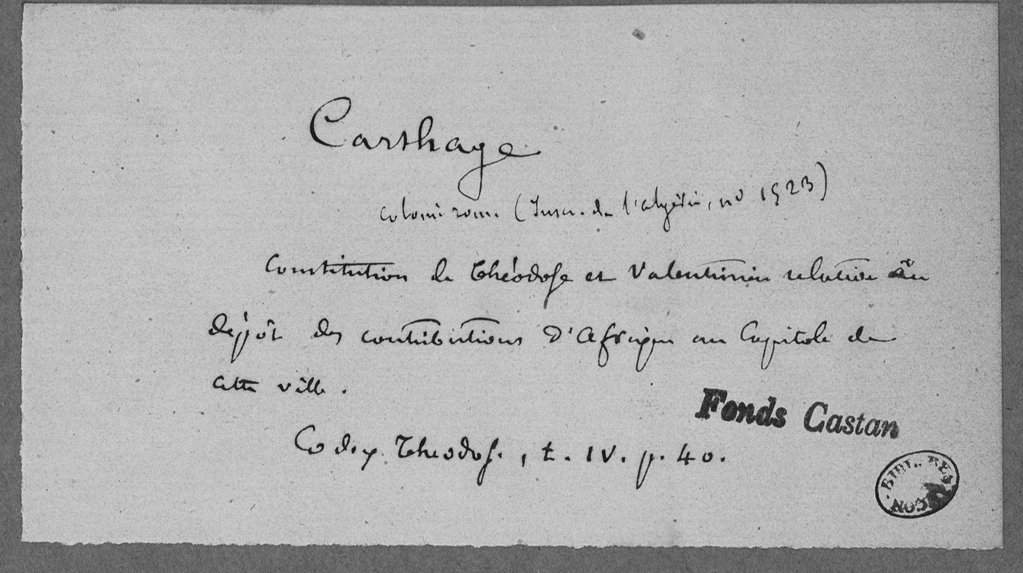 Carthage
colonie rom. (Inscr. de l'algérie, no 1923)
Constitution de Théodose et Valentinien relative au
dépôt des contributions d'Afrique au Capitole de
cette ville.
Codex Theodos., t. IV. p. 40.
Fonds Castan
BIBL. BESANCON